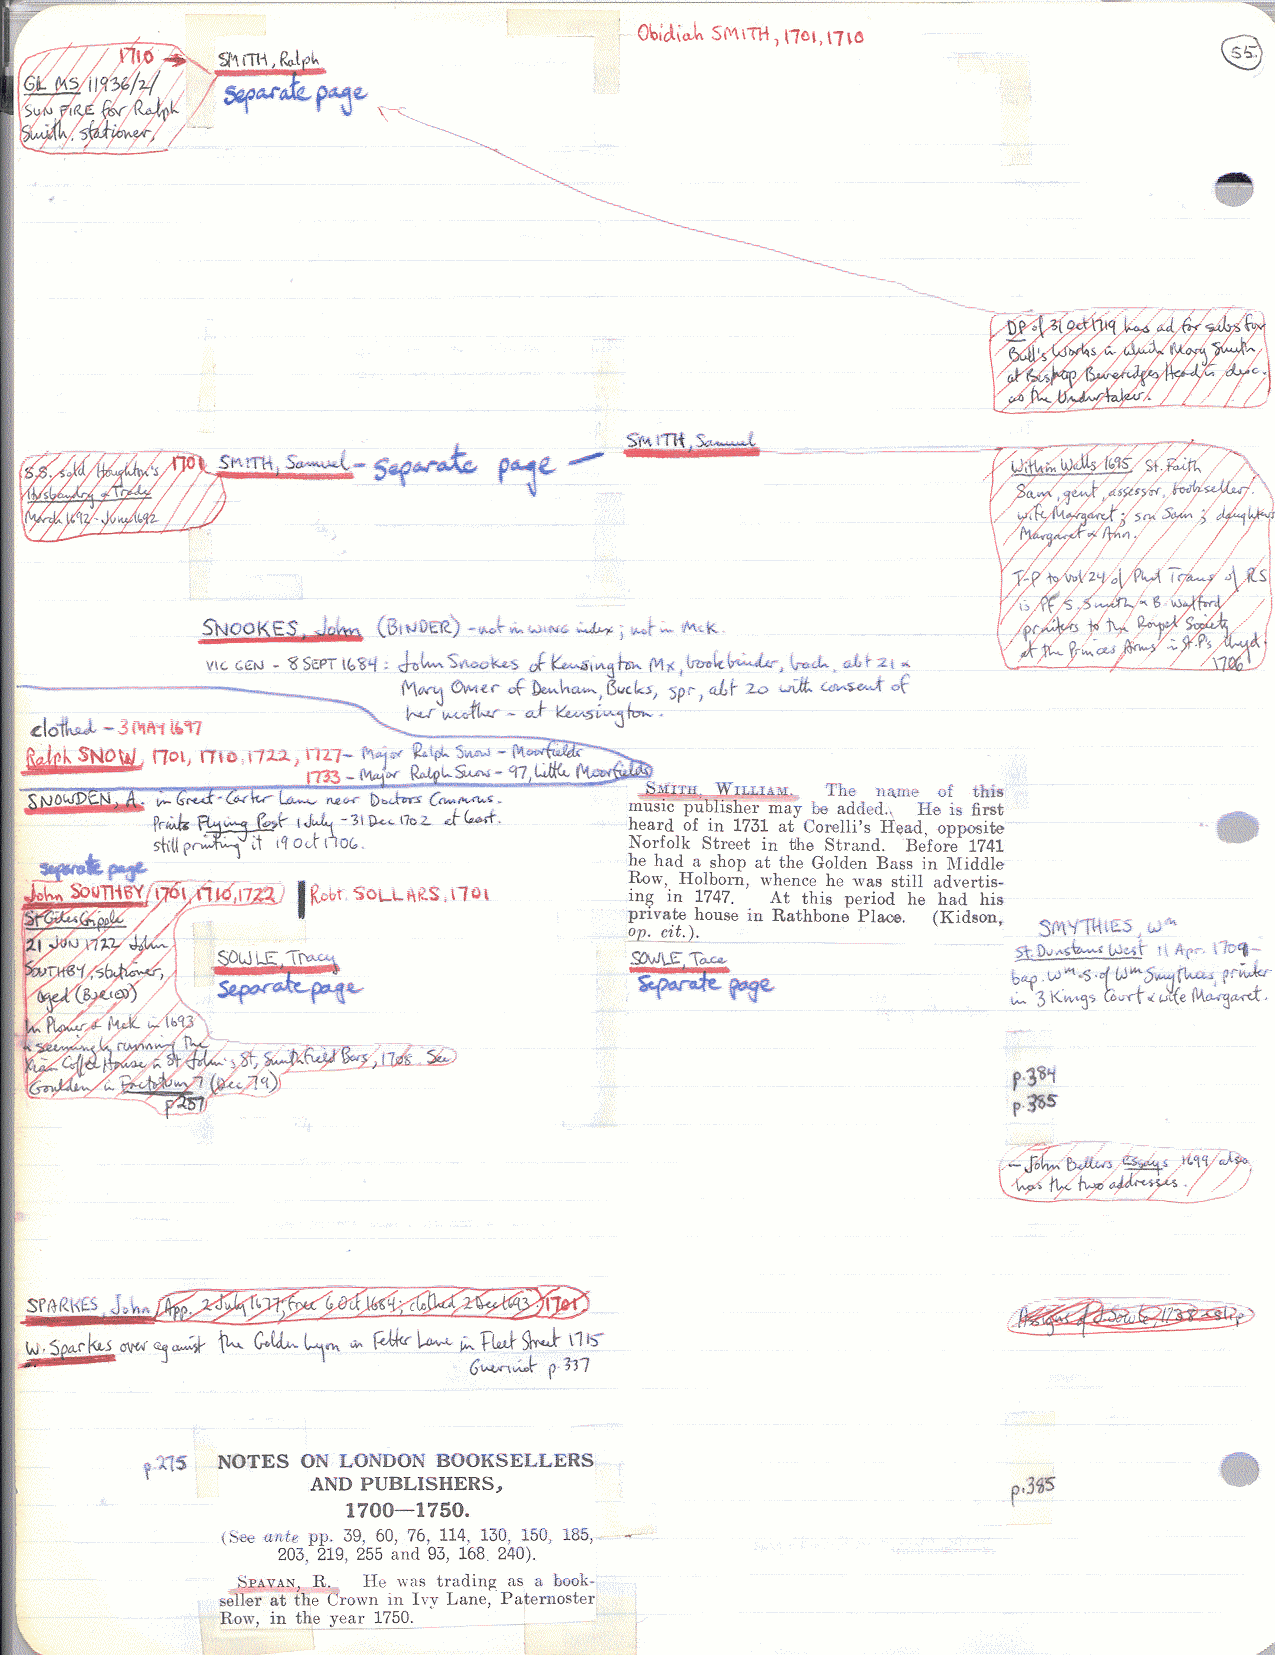 Obidiah SMITH, 1701, 1710
55.
1710 → SMITH, Ralph
Separate page
GL MS 11936/2/
SUN FIRE for Ralph
Smith, stationer,
DP of 31 Oct 1719 has ad for subs for
Bull's Works in which Mary Smith
at Bishop Beveridges Head is desc.
as the Undertaker.
SMITH, Samuel
1701 SMITH, Samuel - Separate page -
S.S. sold Houghton's
Husbandry & Trade
March 1692 - June 1692
Within Walls 1695 St. Faith
Sam, gent, assessor, bookseller.
wife Margaret; son Sam; daughters
Margaret & Ann.
T-P to vol 24 of Phil Trans of RS
is PF S. Smith & B. Walford
printers to the Royal Society
at the Princes Arms in St. P's Chyd.
1706
SNOOKES, John (BINDER) - not in WING index; not in McK.
VIC GEN - 8 SEPT 1684: John Snookes of Kensington Mx, bookbinder, bach, abt 21 &
Mary Omer of Denham, Bucks, spr, abt 20 with consent of
her mother - at Kensington.
clothed - 3 MAY 1697
Ralph SNOW, 1701, 1710, 1722, 1727 - Major Ralph Snow - Moorfields
1733 - Major Ralph Snow - 97, Little Moorfields
SNOWDEN, A. in Great-Carter Lane near Doctors Commons.
Prints Flying Post 1 July - 31 Dec 1702 at least.
still printing it 19 Oct 1706.
SMITH, WILLIAM. The name of this
music publisher may be added. He is first
heard of in 1731 at Corelli's Head, opposite
Norfolk Street in the Strand. Before 1741
he had a shop at the Golden Bass in Middle
Row, Holborn, whence he was still advertis-
ing in 1747. At this period he had his
private house in Rathbone Place. (Kidson,
op. cit.).
separate page
John SOUTHBY, 1701, 1710, 1722 | Robt. SOLLARS, 1701
St Giles Cripple
21 JUN 1722 John
SOUTHBY, stationer,
aged (BURIED)
In Plomer & McK in 1693
& seemingly running the
Coffee House in St John's St, Smithfield Bars, 1708. See
Goulden in Factotum 7 (Dec 79)
p 257
SOWLE, Tracy
Separate page
SOWLE, Tace
Separate page
SMYTHIES, Wm
St. Dunstans West 11 Apr. 1709 -
bap. Wm. s. of Wm Smythies, printer
in 3 Kings Court & wife Margaret.
p.384
p.385
- John Bellers Essays 1699 also
has the two addresses.
SPARKES, John App. 2 July 1677; free 6 Oct 1684; clothed 2 Dec 1693; 1701
Assigns of J Sowle, 1738 - slip
W. Sparkes over against the Golden Lyon in Fetter Lane in Fleet Street 1715
Guerinot p. 337
p.275
NOTES ON LONDON BOOKSELLERS
AND PUBLISHERS,
1700—1750.
(See ante pp. 39, 60, 76, 114, 130, 150, 185,
203, 219, 255 and 93, 168, 240).
SPAVAN, R. He was trading as a book-
seller at the Crown in Ivy Lane, Paternoster
Row, in the year 1750.
p.385